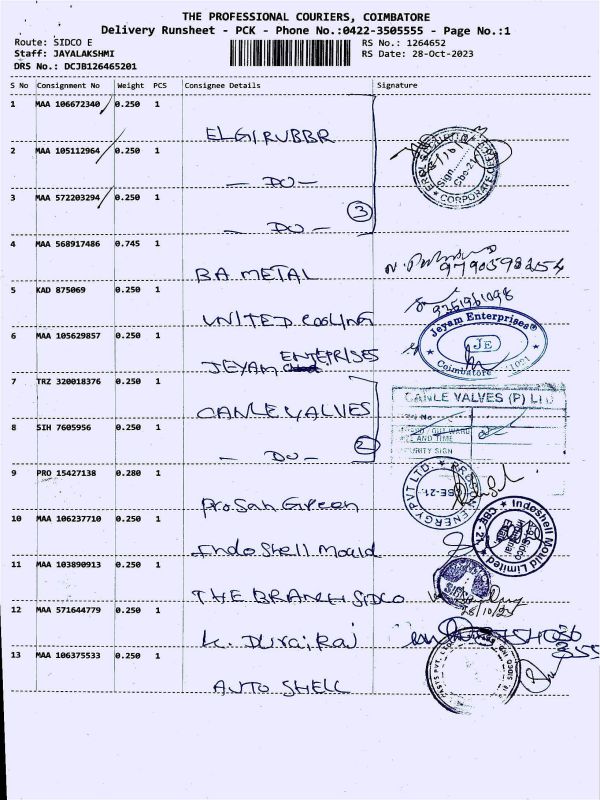 THE PROFESSIONAL COURIERS, COIMBATORE
Delivery Runsheet - PCK - Phone No.:0422-3505555 - Page No.:1
Route: SIDCO E
RS No.: 1264652
Staff: JAYALAKSHMI
RS Date: 28-Oct-2023
DRS No.: DCJB126465201
S No Consignment No Weight PCS Consignee Details Signature
1 MAA 106672340 0.250 1
ELGI RUBBR
2 MAA 105112964 0.250 1
— DO —
Sign.
Cbe-21
CORPORATE OFFICE
3 MAA 572203294 0.250 1
3
— DO —
4 MAA 568917486 0.745 1
BA METAL
5 KAD 875069 0.250 1
UNITED COOLING
6 MAA 105629857 0.250 1
Jeyam Enterprises®
JE
Coimbatore
JEYAM ENTEPRISES
7 TRZ 320018376 0.250 1
CANLE VALVES
CANLE VALVES (P) LTD
8 SIH 7605956 0.250 1
AND TIME
2
— DO —
SECURITY SIGN
9 PRO 15427138 0.280 1
ENERGY PVT LTD.
ProSan Green
10 MAA 106237710 0.250 1
Indoshell Mould Limited
CBE - 21.
Indo Shell Mould
11 MAA 103890913 0.250 1
THE BRANCH SIDCO
28/10/23
12 MAA 571644779 0.250 1
K. Durai Raj
13 MAA 106375533 0.250 1
AUTO SHELL